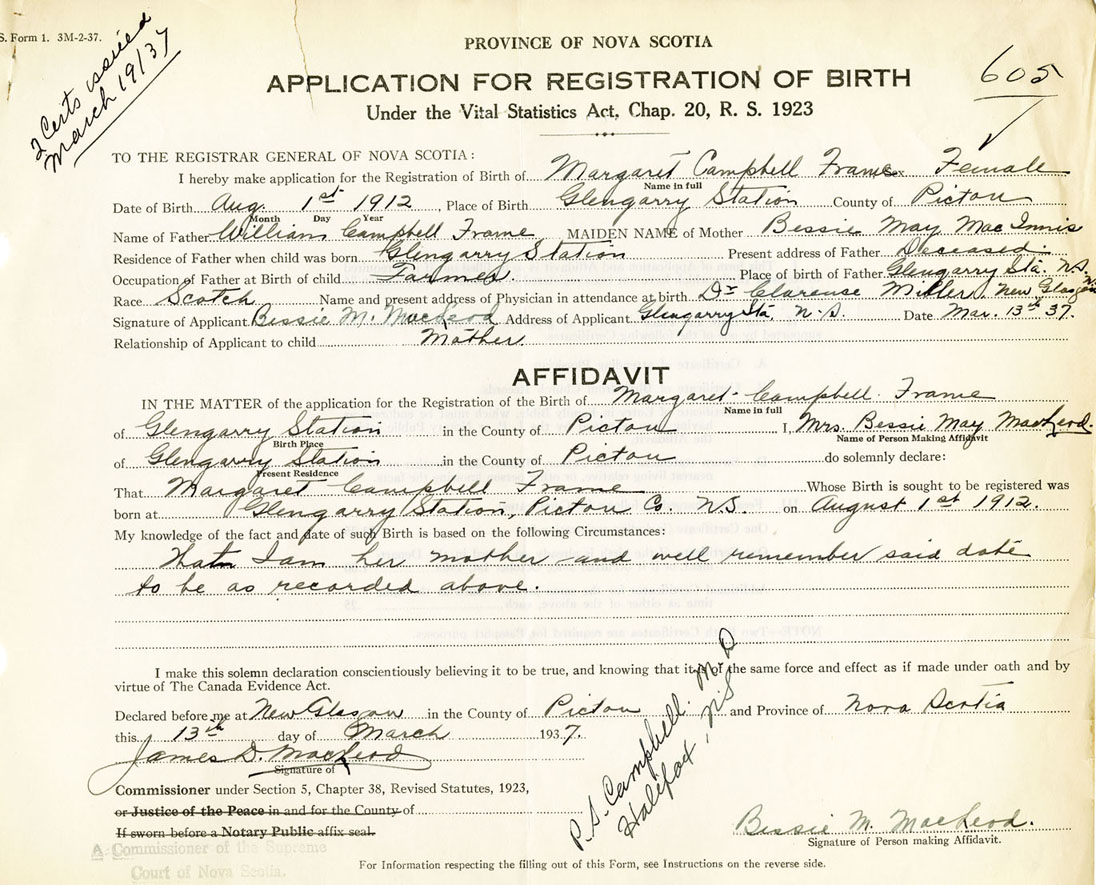 S. Form 1. 3M-2-37.
2 Certs issued
March 19/37
605
PROVINCE OF NOVA SCOTIA
APPLICATION FOR REGISTRATION OF BIRTH
Under the Vital Statistics Act, Chap. 20, R. S. 1923
TO THE REGISTRAR GENERAL OF NOVA SCOTIA:
I hereby make application for the Registration of Birth of Margaret Campbell Frame Sex Female
Name in full
Date of Birth Aug. 1st 1912, Place of Birth Glengarry Station County of Pictou
Month Day Year
Name of Father William Campbell Frame MAIDEN NAME of Mother Bessie May MacInnis
Residence of Father when child was born Glengarry Station Present address of Father Deceased
Occupation of Father at Birth of child Farmer. Place of birth of Father Glengarry Sta. N.S.
Race Scotch Name and present address of Physician in attendance at birth Dr Clarence Miller, New Glasgow N.S.
Signature of Applicant Bessie M. MacLeod Address of Applicant Glengarry Sta. N.S. Date Mar. 13th 37.
Relationship of Applicant to child Mother
AFFIDAVIT
IN THE MATTER of the application for the Registration of the Birth of Margaret Campbell Frame
Name in full
of Glengarry Station in the County of Pictou I, Mrs. Bessie May MacLeod.
Birth Place Name of Person Making Affidavit
of Glengarry Station in the County of Pictou do solemnly declare:
Present Residence
That Margaret Campbell Frame Whose Birth is sought to be registered was
born at Glengarry Station, Pictou Co. N.S. on August 1st 1912.
My knowledge of the fact and date of such Birth is based on the following Circumstances:
That I am her mother and well remember said date
to be as recorded above.
I make this solemn declaration conscientiously believing it to be true, and knowing that it is of the same force and effect as if made under oath and by
virtue of The Canada Evidence Act.
Declared before me at New Glasgow in the County of Pictou and Province of Nova Scotia
this 13th day of March 1937.
James D. MacLeod
Signature of
Commissioner under Section 5, Chapter 38, Revised Statutes, 1923,
or Justice of the Peace in and for the County of
If sworn before a Notary Public affix seal.
A Commissioner of the Supreme
Court of Nova Scotia.
P.S. Campbell. M.D
Halifax, N.S
Bessie M. MacLeod.
Signature of Person making Affidavit.
For Information respecting the filling out of this Form, see Instructions on the reverse side.